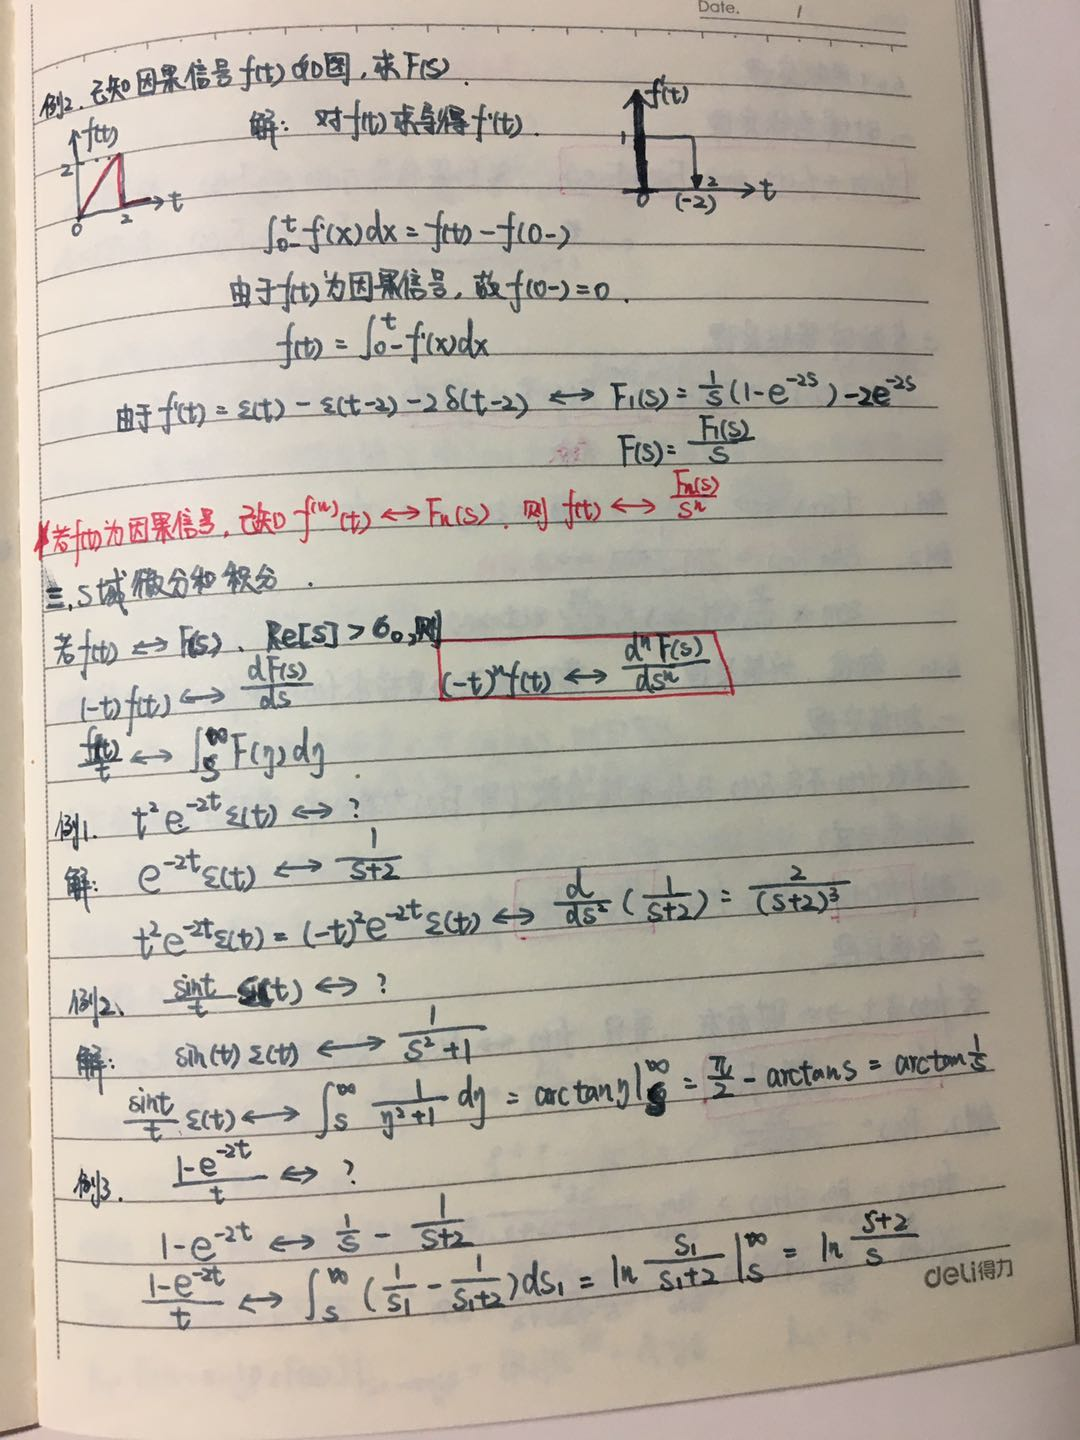 Date. 1
例2. 已知因果信号f(t)如图,求F(S).
解: 对f(t)求导得f'(t).
f(t)
2
0
2
t
f'(t)
1
0
2
(-2)
t
∫₀₋ᵗ f'(x)dx = f(t) - f(0-)
由于f(t)为因果信号,故f(0-)=0.
f(t) = ∫₀₋ᵗ f'(x)dx
由于f'(t) = ε(t) - ε(t-2) - 2δ(t-2) ↔ F₁(s) = 1/s (1-e^{-2s}) - 2e^{-2s}
F(s) = F₁(s)/s
若f(t)为因果信号,已知 f^{(n)}(t) ↔ Fn(s). 则 f(t) ↔ Fn(s)/sⁿ
三、S域微分和积分.
若f(t) ↔ F(s). Re[s] > σ₀,则
(-t)f(t) ↔ dF(s)/ds
(-t)ⁿf(t) ↔ dⁿF(s)/dsⁿ
f(t)/t ↔ ∫_s^∞ F(η)dη
例1. t²e^{-2t}ε(t) ↔ ?
解: e^{-2t}ε(t) ↔ 1/(s+2)
t²e^{-2t}ε(t) = (-t)²e^{-2t}ε(t) ↔ d/ds² (1/(s+2)) = 2/(s+2)³
例2、 sint/t ε(t) ↔ ?
解: sin(t)ε(t) ↔ 1/(s²+1)
sint/t ε(t) ↔ ∫_s^∞ 1/(η²+1) dη = arctanη|_s^∞ = π/2 - arctans = arctan 1/s
例3. (1-e^{-2t})/t ↔ ?
1-e^{-2t} ↔ 1/s - 1/(s+2)
(1-e^{-2t})/t ↔ ∫_s^∞ (1/s₁ - 1/(s₁+2))ds₁ = ln s₁/(s₁+2) |_s^∞ = ln (s+2)/s
deli得力